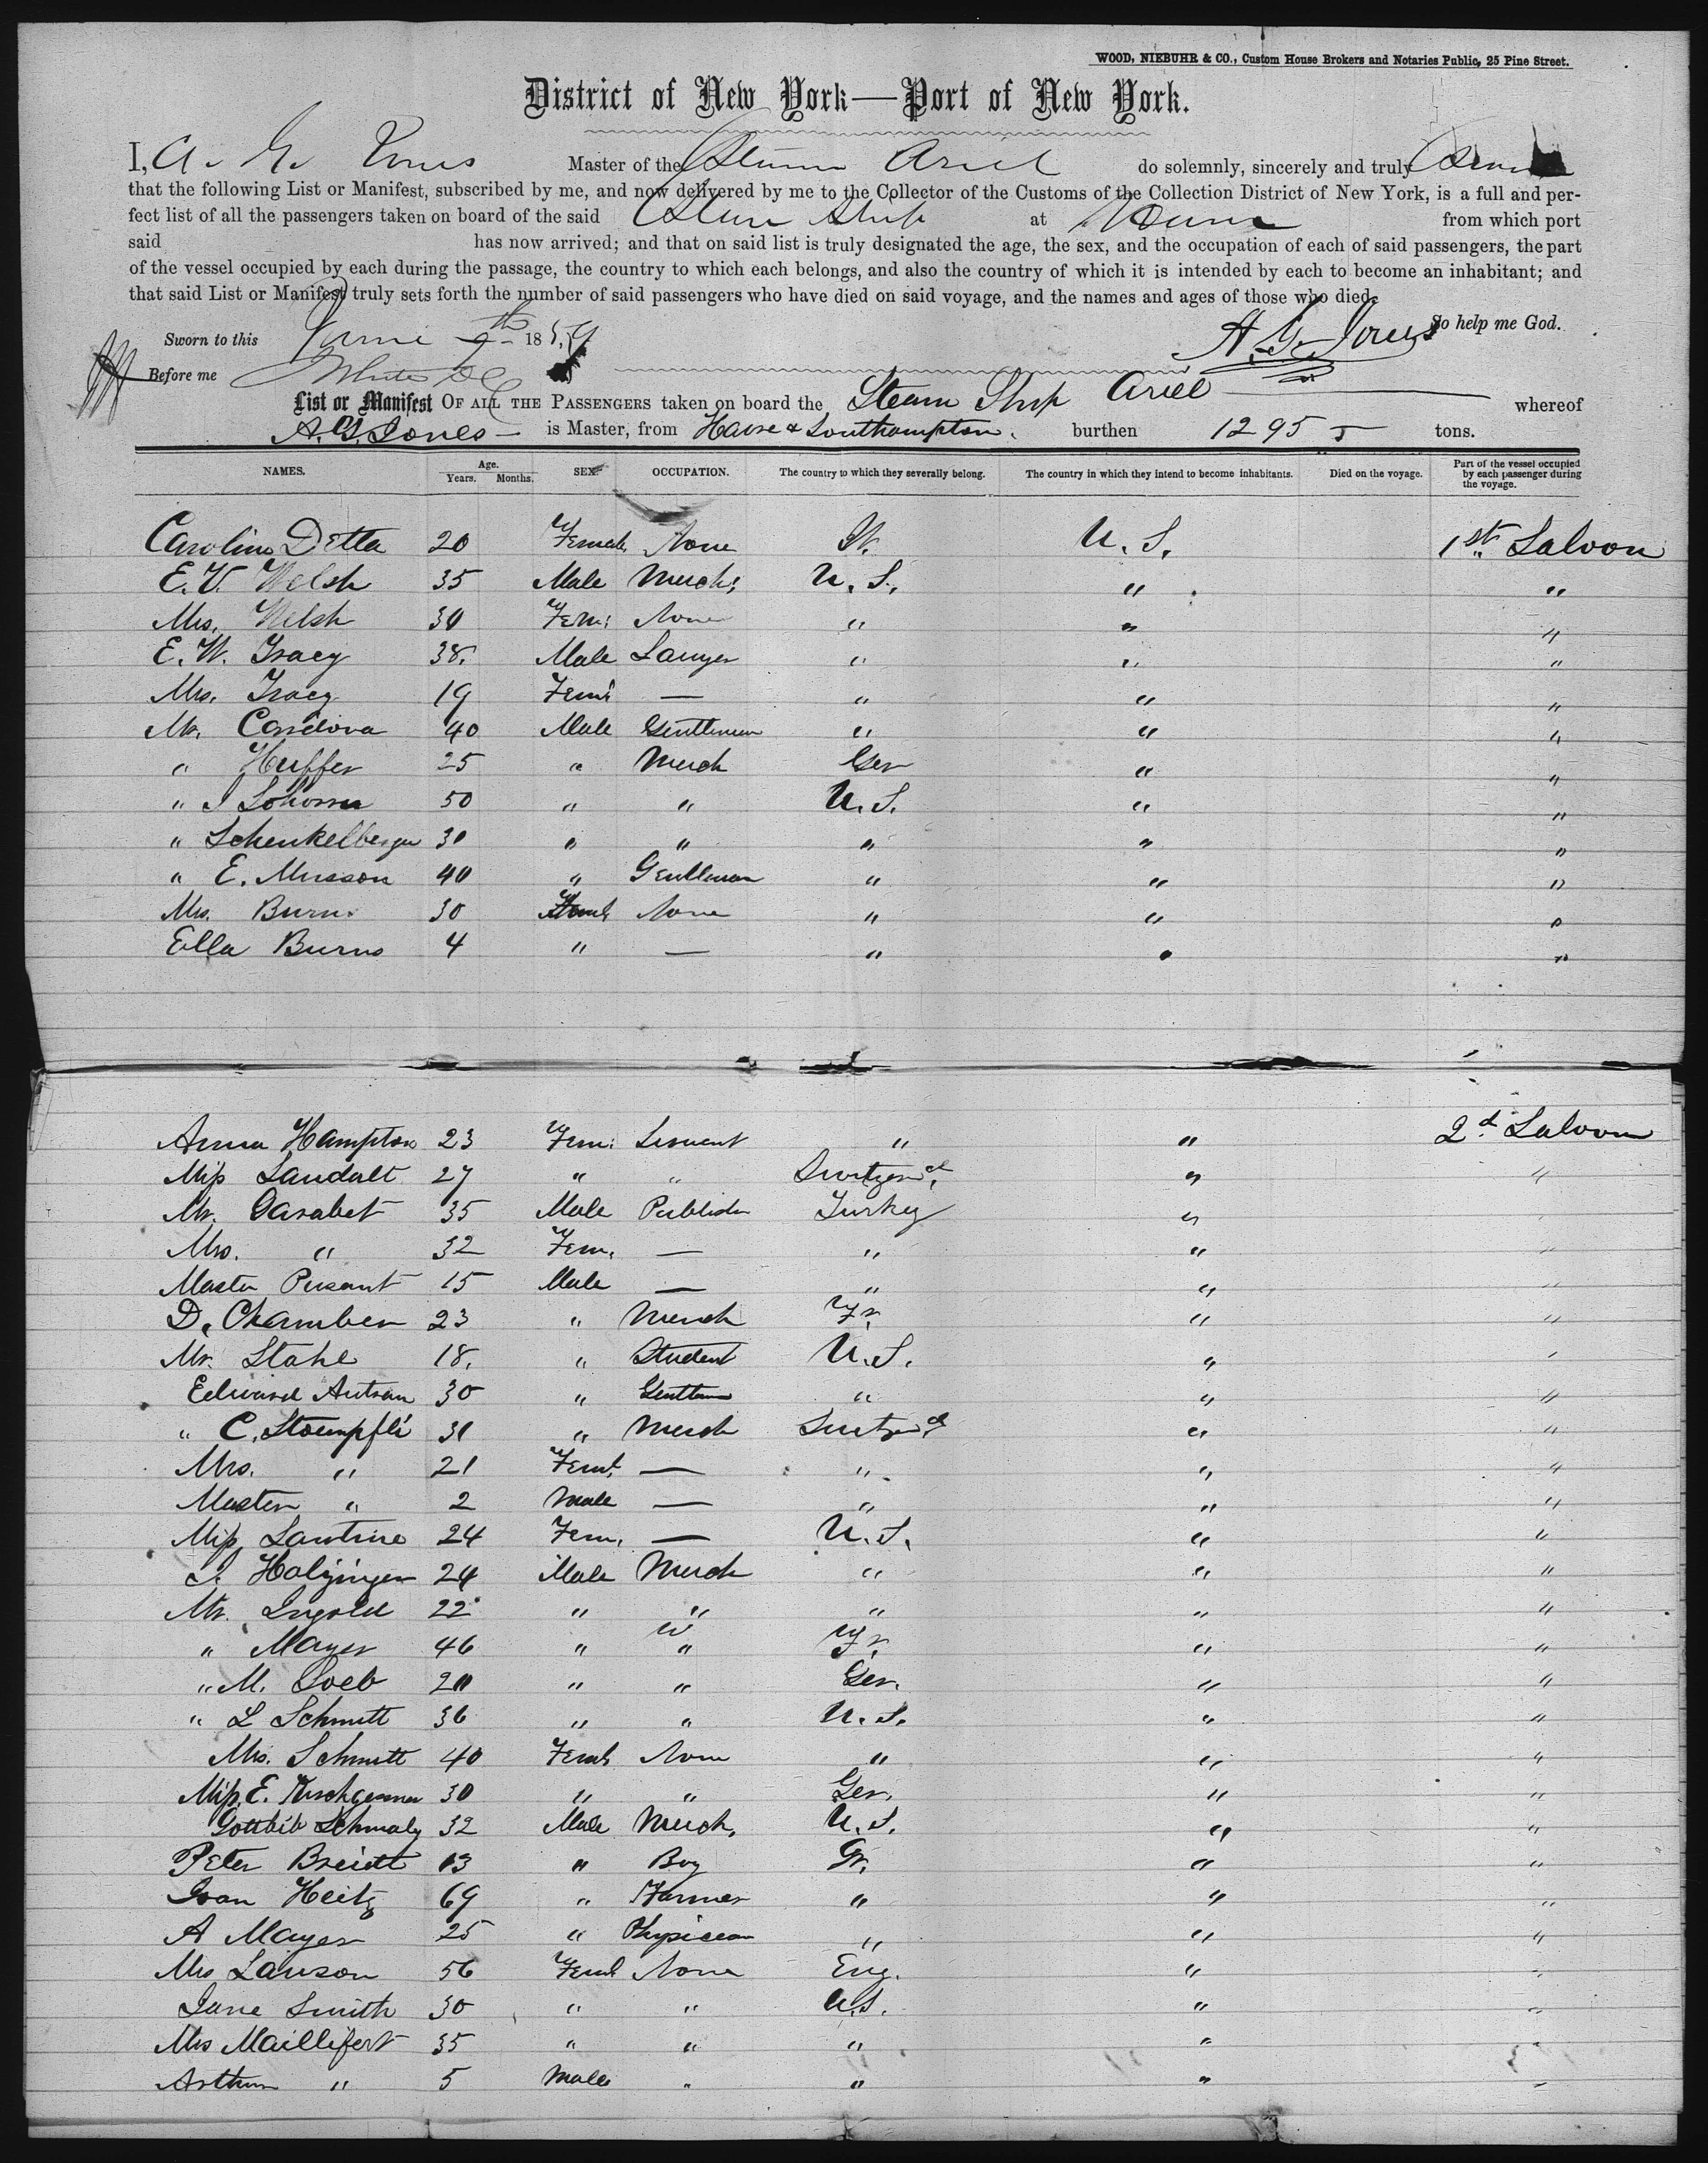 WOOD, NIEBUHR & CO., Custom House Brokers and Notaries Public, 25 Pine Street.
District of New York—Port of New York.
I, A. G. Jones Master of the Steamer Ariel do solemnly, sincerely and truly Swear
that the following List or Manifest, subscribed by me, and now delivered by me to the Collector of the Customs of the Collection District of New York, is a full and per-
fect list of all the passengers taken on board of the said Steam Ship at Havre from which port
said has now arrived; and that on said list is truly designated the age, the sex, and the occupation of each of said passengers, the part
of the vessel occupied by each during the passage, the country to which each belongs, and also the country of which it is intended by each to become an inhabitant; and
that said List or Manifest truly sets forth the number of said passengers who have died on said voyage, and the names and ages of those who died.
So help me God.
Sworn to this June 9th 1859 A. G. Jones
Before me
List or Manifest OF ALL THE PASSENGERS taken on board the Steam Ship Ariel whereof
A. G. Jones is Master, from Havre & Southampton. burthen 1295 tons.
NAMES. Age. Years. Months. SEX. OCCUPATION. The country to which they severally belong. The country in which they intend to become inhabitants. Died on the voyage. Part of the vessel occupied by each passenger during the voyage.
Caroline Detta 20 Female None U. S. 1st Saloon
E. V. Welsh 35 Male Merch; U. S. " "
Mrs. Welsh 30 Fem: None " " "
E. W. Tracy 38. Male Lawyer " " "
Mrs. Tracy 19 Fem: — " " "
Mr. Cordova 40 Male Gentleman " " "
" Huffer 25 " Merch Ger " "
" 50 " " U. S. " "
" Schenkelberger 30 " " " " "
" E. Musson 40 " Gentleman " " "
Mrs. Burns 30 Feml None " " "
Ella Burns 4 " — " " "
Anna Hampton 23 Fem: Servent " " 2d Saloon
Miss Landalt 27 " " Switzerd. " "
Mr. Garabet 35 Male Publisher Turkey "
Mrs. " 32 Fem. — " " "
Master 15 Male — " " "
D. Chamber 23 " Merch Fr. " "
Mr. Stahl 18. " Student U. S. " "
Edward Autran 30 " Gentlem " " "
" C. Stoempfli 31 " Merch Switzerd " "
Mrs. " 21 Feml. — " " "
Master " 2 Male — " " "
Miss 24 Fem. — U. S. " "
24 Male Merch " " "
Mr. Ingold 22 " " " " "
" Mayer 46 " " Fr. " "
" M. Loeb 20 " " Ger. " "
" L Schmitt 36 " " U. S. " "
Mrs. Schmitt 40 Feml None " " "
Miss E. 30 " " Ger. " "
Gottlieb Schmaly 32 Male Merch. U. S. " "
Peter Breidt 13 " Boy Gr. " "
Heitz 69 " Farmer " " "
A Mayer 25 " Physician " " "
Mrs Lawson 56 Feml None Eng. " "
Jane Smith 30 " " U.S. " "
Mrs Maillifert 35 " " " " "
Arthur " 5 Male " " " "